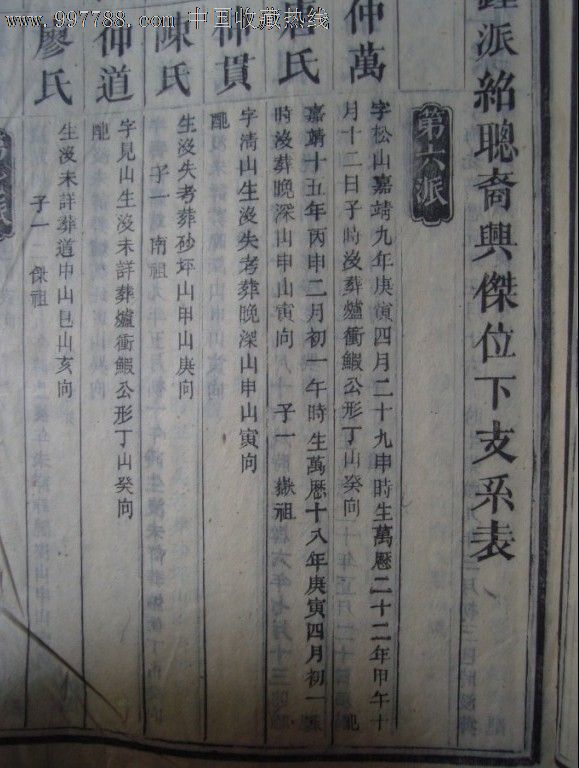 www.997788.com 中国收藏热线
派紹聰裔興傑位下支系表
第六派
仲萬
字松山嘉靖九年庚寅四月二十九申時生萬厯二十二年甲午十
月十二日子時沒葬爐衝鰕公形丁山癸向 配
氏
嘉靖十五年丙申二月初一午時生萬厯十八年庚寅四月初一
時沒葬晚深山申山寅向 子一 嶽祖
仲貫
字清山生沒失考葬晚深山申山寅向
配
陳氏
生沒失考葬砂坪山甲山庚向
子一 南祖
仲道
字見山生沒未詳葬爐衝鰕公形丁山癸向
配
廖氏
生沒未詳葬道中山巳山亥向
子一 傑祖